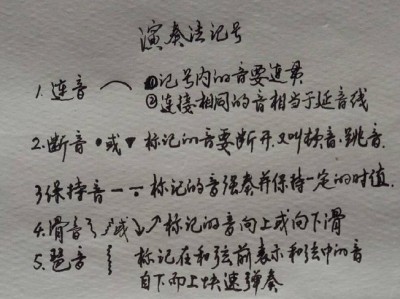 演奏法记号
1.连音 ⌒ ①记号内的音要连贯
②连接相同的音相当于延音线
2.断音 •或▼ 标记的音要断开.又叫顿音.跳音.
3保持音 — ÷ 标记的音强奏并保持一定的时值.
4.滑音 或 ↘↗ 标记的音向上或向下滑
5.琶音 ⌇ 标记在和弦前表示和弦中的音
自下而上快速弹奏